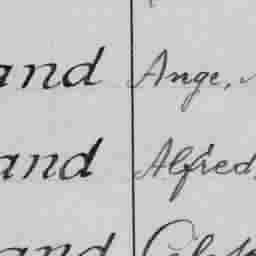 and Ange,
and Alfred,
and